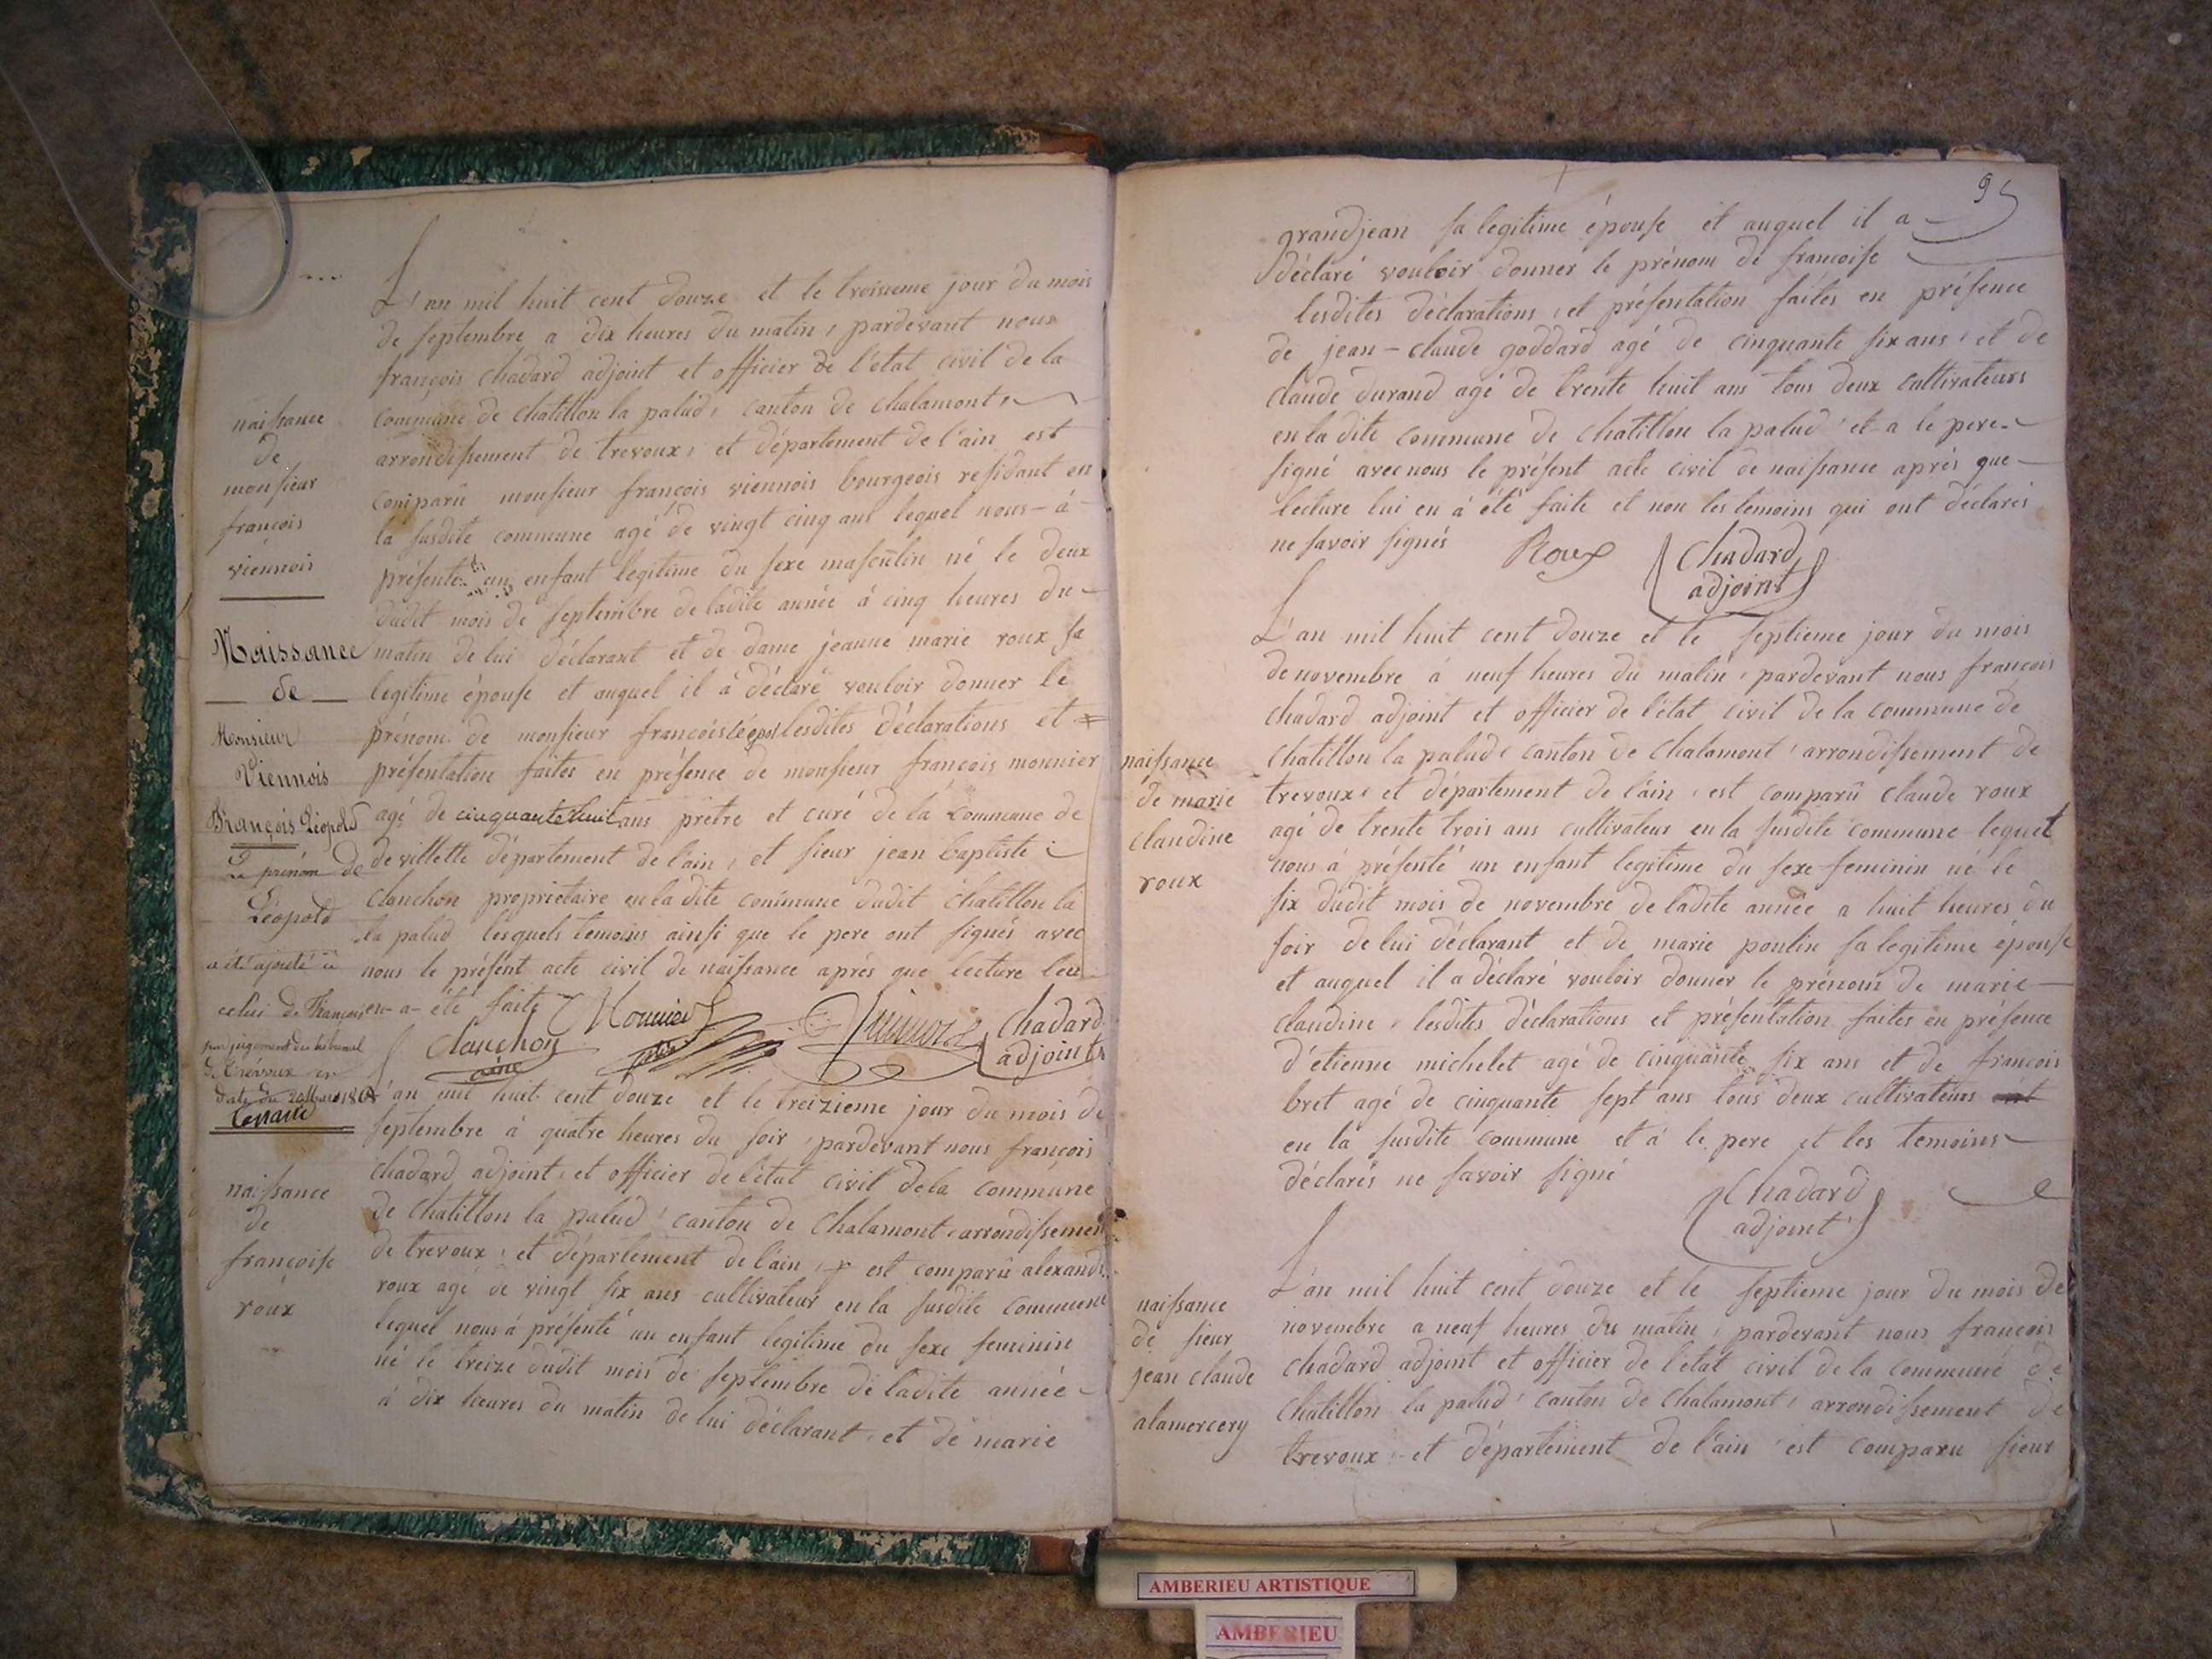 L'an mil huit cent douze et le troisieme jour du mois
de septembre a dix heures du matin, pardevant nous
françois chadard adjoint et officier de l'état civil de la
commune de chatillon la palud, canton de chalamont,
arrondissement de trevoux, et département de l'ain est
comparû monsieur françois viennois bourgeois residant en
la susdite commune agé de vingt cinq ans lequel nous-à-
présenté un enfant legitime du sexe masculin né le deux
dudit mois de septembre de ladite année á cinq heures du-
matin de lui déclarant et de dame jeanne marie roux sa
legitime épouse et auquel il á déclaré vouloir donner le
prénom de monsieur francois léopol lesdites déclarations et
présentation faites en présence de monsieur françois monnier
agé de cinquante huit ans prètre et curé de la commune de
de villette département de l'ain, et sieur jean baptiste
clanchon proprietaire en la dite commune dudit chatillon la
la palud lesquels temoins ainsi que le pere ont signés avec
nous le présent acte civil de naissance aprés que lecture leu
en-a-été faite
Monnier
Clanchon
ainé
Chadard
adjoint
naissance
de
monsieur
françois
viennois
Naissance
de
Monsieur
Viennois
François Léopold
Le prénom de
Léopold
a été ajouté à
celui de François
par jugement du tribunal
de Trévoux en
L'an mil huit cent douze et le treizieme jour du mois de
septembre à quatre heures du soir, pardevant nous françois
chadard adjoint, et officier de l'état civil de la commune
de chatillon la palud, canton de chalamont, arrondissemen
de trevoux, et département de l'ain, est comparû alexand
roux agé de vingt six ans cultivateur en la susdite commune
lequel nous à présenté un enfant legitime du sexe feminin
né le treize dudit mois de septembre de ladite année-
á dix heures du matin de lui déclarant, et de marie
naissance
de
françoise
roux
95
grandjean sa legitime épouse et auquel il a
déclaré vouloir donner le prénom de francoise
lesdites déclarations, et présentation faites en présence
de jean-claude goddard agé de cinquante six ans, et de
claude durand agé de trente huit ans tous deux cultivateurs
en la dite commune de chatillon la palud, et-a le pere-
signé avec nous le présent acte civil de naissance aprés que-
lecture lui en á été faite et non les temoins qui ont déclarés
ne savoir signés
Roux
Chadard
adjoint
L'an mil huit cent douze et le septieme jour du mois
de novembre á neuf heures du matin, pardevant nous françois
chadard adjoint et officier de l'état civil de la commune de
chatillon la palud, canton de chalamont, arrondissement de
trevoux, et département de l'ain, est comparû claude roux
agé de trente trois ans cultivateur en la susdite commune lequel
nous á présenté un enfant legitime du sexe feminin né le
six dudit mois de novembre de ladite année a huit heures du
soir de lui déclarant et de marie poulin sa legitime épouse
et auquel il a déclaré vouloir donner le prénom de marie-
claudine, lesdites déclarations et présentation faites en présence
d'étienne michelet agé de cinquante six ans et de françois
bret agé de cinquante sept ans tous deux cultivateurs
en la susdite commune et á le pere et les temoins
déclarés ne savoir signé
Chadard
adjoint
naissance
de marie
claudine
roux
L'an mil huit cent douze et le septieme jour du mois de
novembre a neuf heures du matin, pardevant nous francois
chadard adjoint et officier de l'état civil de la commune de
chatillon la palud, canton de chalamont, arrondissement de
trevoux, et département de l'ain, est comparu sieur
naissance
de sieur
jean claude
alamercery
AMBERIEU ARTISTIQUE
AMBERIEU